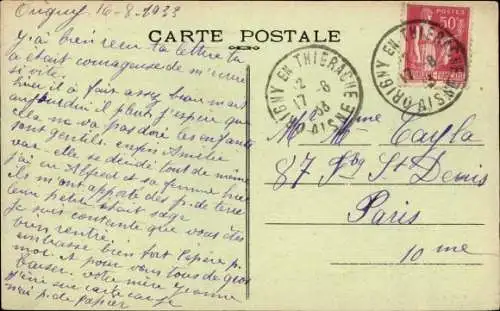 Origny 16-8-1933
J'ai bien reçu ta lettre tu
a était courageuse de m'écrire
si vite.
hier il a fait assez beau mais
aujourd'hui il pleut j'espère que
cela ne va pas durer les enfants
sont gentils. enfin Amélie
va. elle se décide tout de même
j'ai eu Alfred et sa femme hier
ils m'ont apporté des p. de terre
leur petite était sage
je suis contente que vous êtes
bien rentré.
embrasse bien fort Pépère p.
moi. A pour vous tous de gros
baiser. votre mère Jeanne
j'écris sur carte car je
n'ai p. de Papier
CARTE POSTALE
POSTES
50c
ORIGNY EN THIERACHE
AISNE
17-8
33
ORIGNY EN THIERACHE
AISNE
Mme Tayla
87 Fbg St Denis
Paris
10me